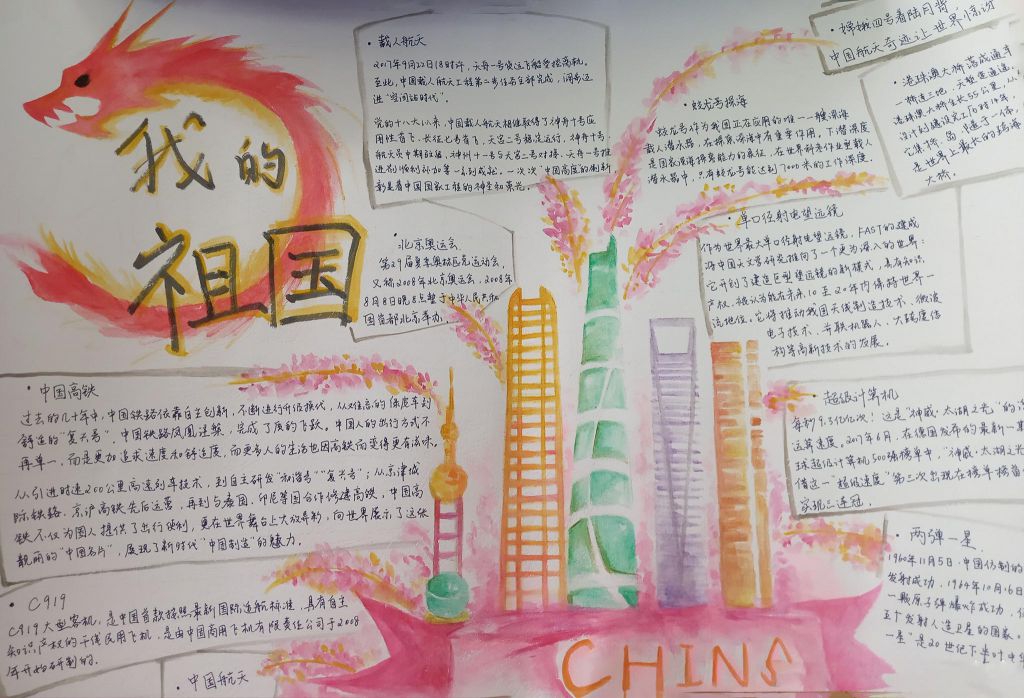 我的
祖国
·载人航天
2017年9月22日18时许，天舟一号货运飞船受控离轨。
至此，中国载人航天工程第二步任务全部完成，阔步迈
进"空间站时代"。
党的十八大以来，中国载人航天相继取得了神舟十号应
用性首飞，长征七号首飞，天宫二号稳定运行，神舟十一号
航天员中期驻留，神州十一号与天宫二号对接，天舟一号推
进剂
等一系列成就。一次次"中国高度的刷新
彰显着中国国家工程的
·北京奥运会
第29届夏季奥林匹克运动会，
又称2008年北京奥运会，2008年
8月8日晚8点整于中华人民共和
国首都北京举办.
·蛟龙号探海
蛟龙号作为我国正在应用的唯一一艘深海
载人潜水器，在探索深海中有重要作用。下潜深度
是国家深海探索能力的表征，在世界同类作业型载人
潜水器中，只有蛟龙号能达到了7000米的工作深度.
·嫦娥四号看陆月背
中国航天奇迹让世界惊讶
·港珠澳大桥落成通车
一桥连三地，天堑变通途，
港珠澳大桥全长55公里，从
设计到建设完工历时14年，
它集桥、岛、隧于一体，
是世界上最长的跨海
大桥.
·单口径射电望远镜
作为世界最大单口径射电望远镜，FAST的建成
将中国天文学研究推向了一个更为深入的世界；
它开创了建造巨型望远镜的新模式，具有知识
产权，被认为能在未来10至20年内保持世界一
流地位。它将推动我国天线制造技术、微波
电子技术、并联机器人、大跨度结
构等高新技术的发展.
·中国高铁
过去的几十年中，中国铁路依靠自主创新，不断进行升级换代，从
舒适的"复兴号"，中国铁路凤凰涅槃，完成了质的飞跃。中国人的出行方式不
再单一，而是更加追求速度和舒适度，而更多人的生活也因高铁而变得更有滋味。
从引进时速200公里高速列车技术，到自主研发"和谐号""复兴号"；从京津城
际铁路、京沪高铁先后运营，再到与泰国、印尼等国合作修建高铁，中国高
铁不仅为国人提供了出行便利，更在世界舞台上大放异彩，向世界展示了这张
靓丽的"中国名片"，展现了新时代"中国制造"的魅力。
·超级计算机
每秒9.3亿亿次！这是"神威·太湖之光"的
运算速度。2017年6月，在德国发布的最新一期
球超级计算机500强榜单中，"神威·太湖之光
借这一"超级速度"第三次出现在榜单榜首
实现三连冠.
·两弹一星.
1960年11月5日.中国仿制的
发射成功，1964年10月16日
一颗原子弹爆炸成功，
五个发射人造卫星的国家。
一星"是20世纪下半叶中华
·C919
C919大型客机，是中国首款按照最新国际适航标准，具有自主
知识产权的干线民用飞机，是由中国商用飞机有限责任公司于2008
年开始研制的.
·中国航天
CHINA